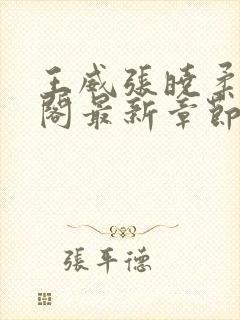 王威張曉柔
閣最新章節
張平德